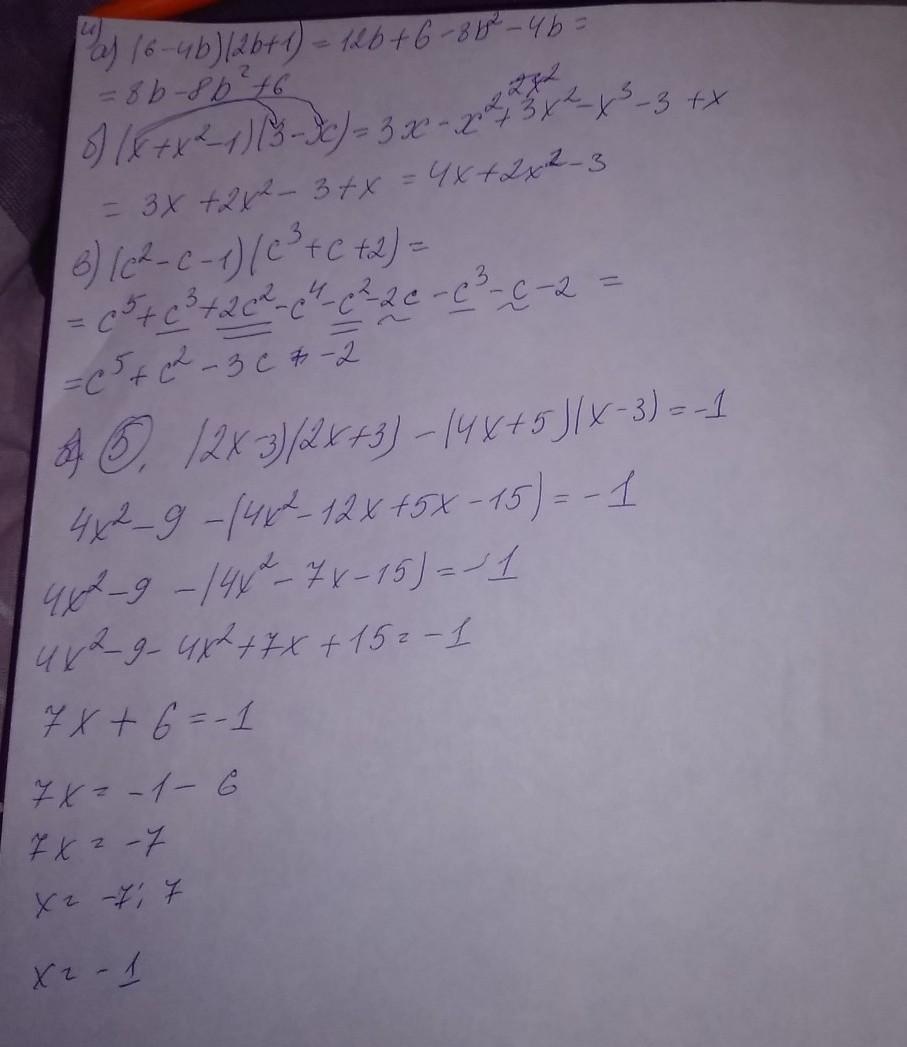 4)
а) (6-4b)(2b+1) = 12b+6-8b²-4b=
= 8b-8b²+6
б) (x+x²-1)(3-x) = 3x-x²+3x²-x³-3+x
2x²
= 3x+2x²-3+x = 4x+2x²-3
в) (c²-c-1)(c³+c+2)=
= c⁵+c³+2c²-c⁴-c²-2c-c³-c-2 =
=c⁵+c²-3c-2
5. (2x-3)(2x+3)-(4x+5)(x-3)=-1
4x²-9-(4x²-12x+5x-15)=-1
4x²-9-(4x²-7x-15)=-1
4x²-9-4x²+7x+15=-1
7x+6=-1
7x=-1-6
7x=-7
x=-7:7
x=-1